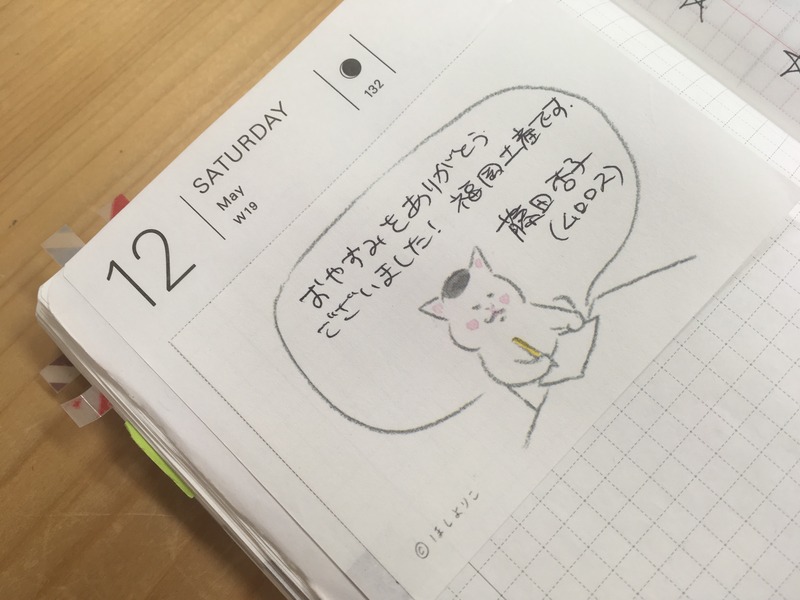 12
SATURDAY
May
W19
132
おやすみをありがとう
ございました!
福岡土産です.
藤田 杏子
(4002)
© ほしよりこ